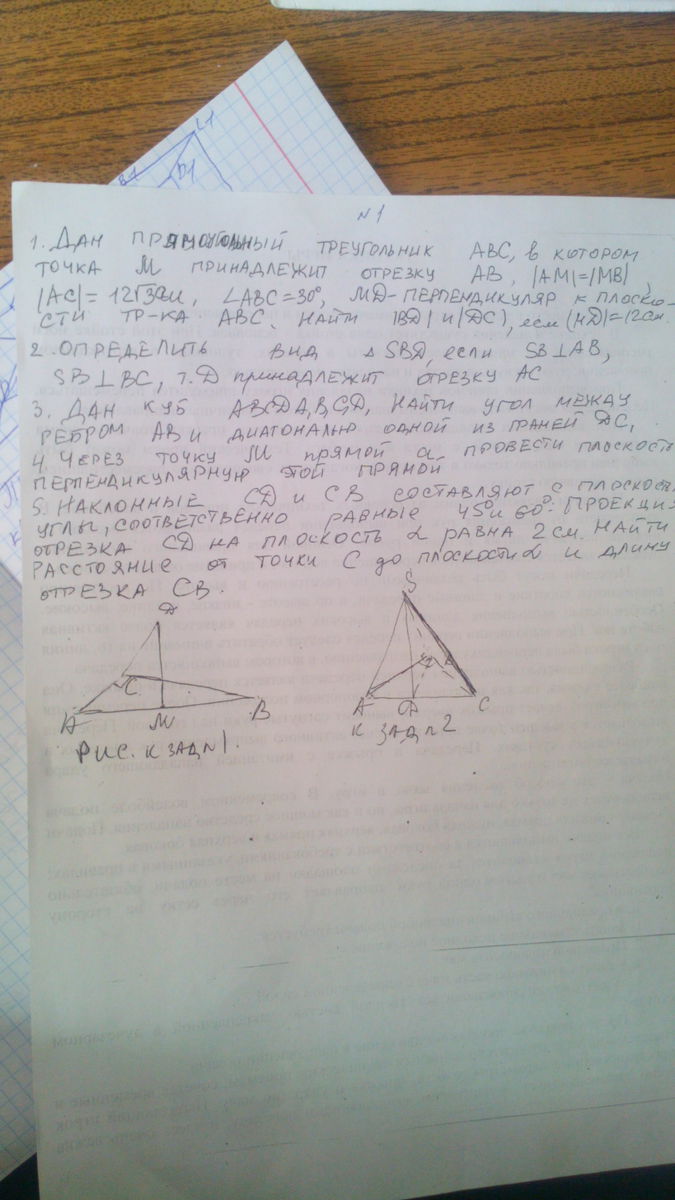 N1
1. ДАН ПРЯМОУГОЛЬНЫЙ ТРЕУГОЛЬНИК АВС, В КОТОРОМ
ТОЧКА М ПРИНАДЛЕЖИТ ОТРЕЗКУ АВ, |АМ|=|МВ|,
|АС|= 12√3см, ∠АВС=30°, МД-ПЕРПЕНДИКУЛЯР К ПЛОСКО-
СТИ ТР-КА АВС. НАЙТИ |ВД| И |ДС|, если |МД|=12см.
2. ОПРЕДЕЛИТЬ ВИД △ SBД, если SB⊥АВ,
SB⊥BC, т.Д принадлежит отрезку АС
3. ДАН КУБ АВСDA₁B₁C₁D₁ НАЙТИ УГОЛ МЕЖДУ
РЕБРОМ АВ И ДИАГОНАЛЬЮ ОДНОЙ ИЗ ГРАНЕЙ DC₁
4. ЧЕРЕЗ ТОЧКУ М ПРЯМОЙ а ПРОВЕСТИ ПЛОСКОСТЬ
ПЕРПЕНДИКУЛЯРНУЮ ЭТОЙ ПРЯМОЙ
5. НАКЛОННЫЕ СД И СВ СОСТАВЛЯЮТ С ПЛОСКОСТ.
УГЛЫ, СООТВЕТСТВЕННО РАВНЫЕ 45° и 60°. ПРОЕКЦИЯ
ОТРЕЗКА СД НА ПЛОСКОСТЬ α РАВНА 2 см. НАЙТИ
РАССТОЯНИЕ ОТ ТОЧКИ С ДО ПЛОСКОСТИ α И ДЛИНУ
ОТРЕЗКА СВ.
Д
С
А М В
РИС. К ЗАД N1.
S
А Д С
К ЗАД N2